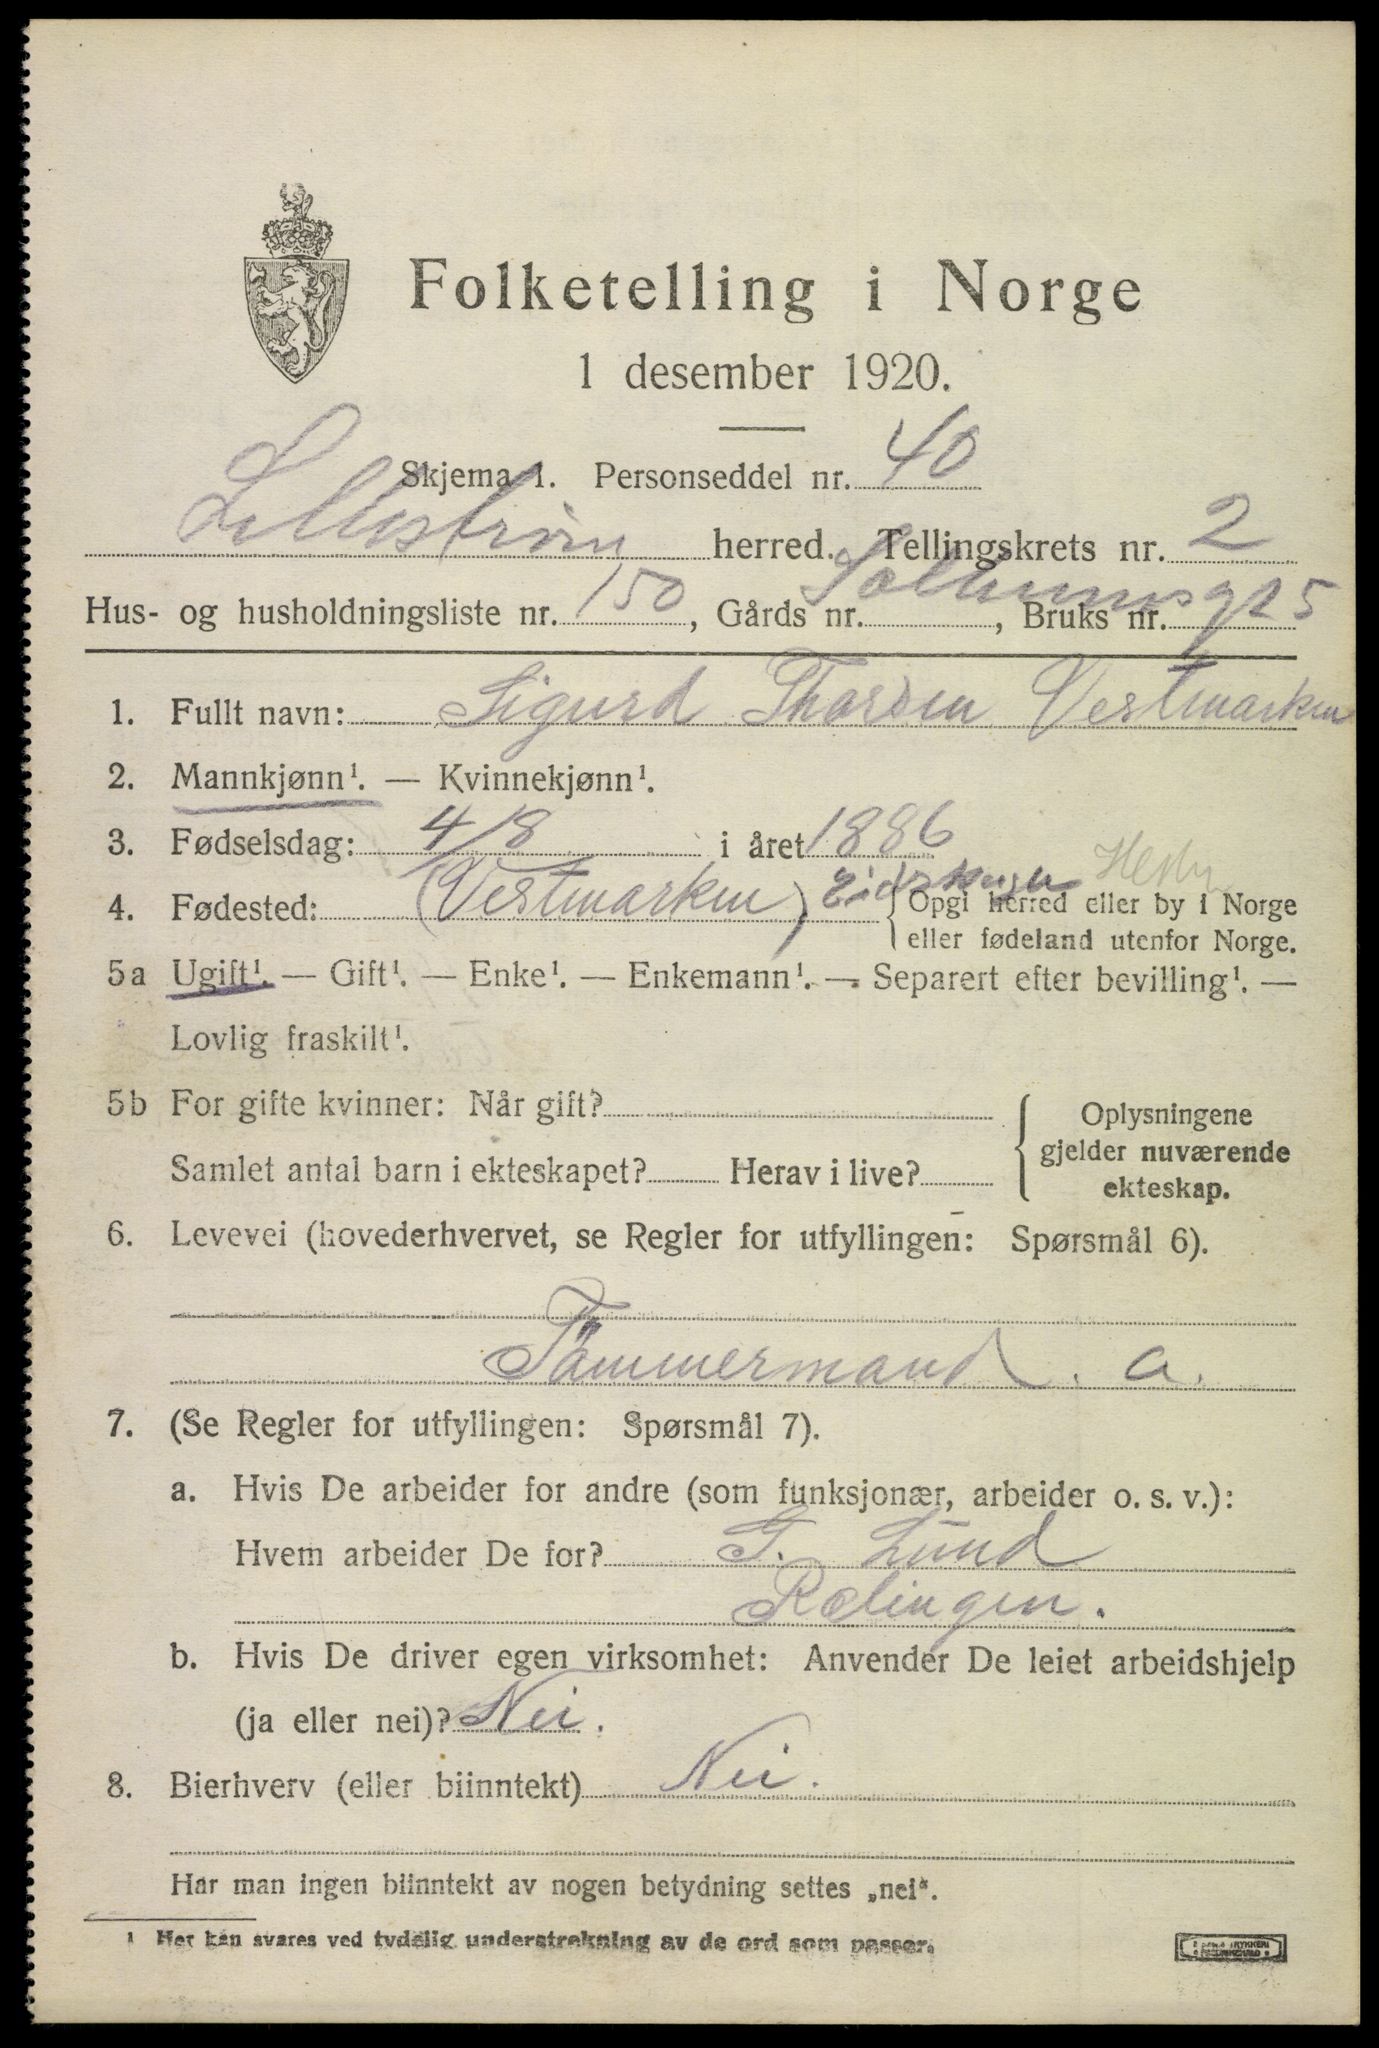 Folketelling i Norge
1 desember 1920.
Skjema 1. Personseddel nr. 40
Lillestrøm herred. Tellingskrets nr. 2
Hus- og husholdningsliste nr. 150, Gårds nr. , Bruks nr. 25
1. Fullt navn: Sigurd Vestmarken
2. Mannkjønn¹. — Kvinnekjønn¹.
3. Fødselsdag: 4/8 i året 1886
4. Fødested: (Vestmarken) Eidskogen Opgi herred eller by i Norge
eller fødeland utenfor Norge.
5a Ugift¹. — Gift¹. — Enke¹. — Enkemann¹. — Separert efter bevilling¹. —
Lovlig fraskilt¹.
5b For gifte kvinner: Når gift?
Samlet antal barn i ekteskapet? Herav i live?
Oplysningene
gjelder nuværende
ekteskap.
6. Levevei (hovederhvervet, se Regler for utfyllingen: Spørsmål 6).
Tömmermand. a.
7. (Se Regler for utfyllingen: Spørsmål 7).
a. Hvis De arbeider for andre (som funksjonær, arbeider o. s. v.):
Hvem arbeider De for? G. Lund
Rælingen.
b. Hvis De driver egen virksomhet: Anvender De leiet arbeidshjelp
(ja eller nei)? Nei.
8. Bierhverv (eller biinntekt) Nei.
Har man ingen biinntekt av nogen betydning settes „nei“.
¹ Her kan svares ved tydelig understrekning av de ord som passer.